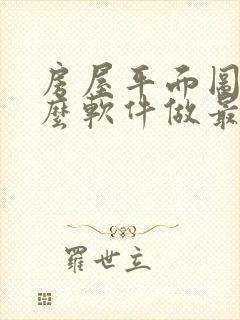 房屋平面圖
麼軟件做最
羅世立